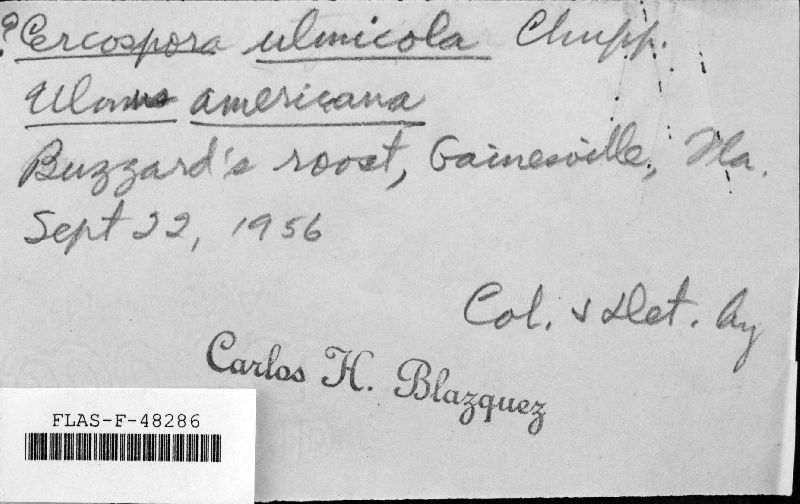 ? Cercospora ulmicola Chupp.
Ulmus americana
Buzzard's roost, Gainesville, Fla.
Sept 22, 1956
Col. & Det. by
Carlos H. Blazquez
FLAS-F-48286